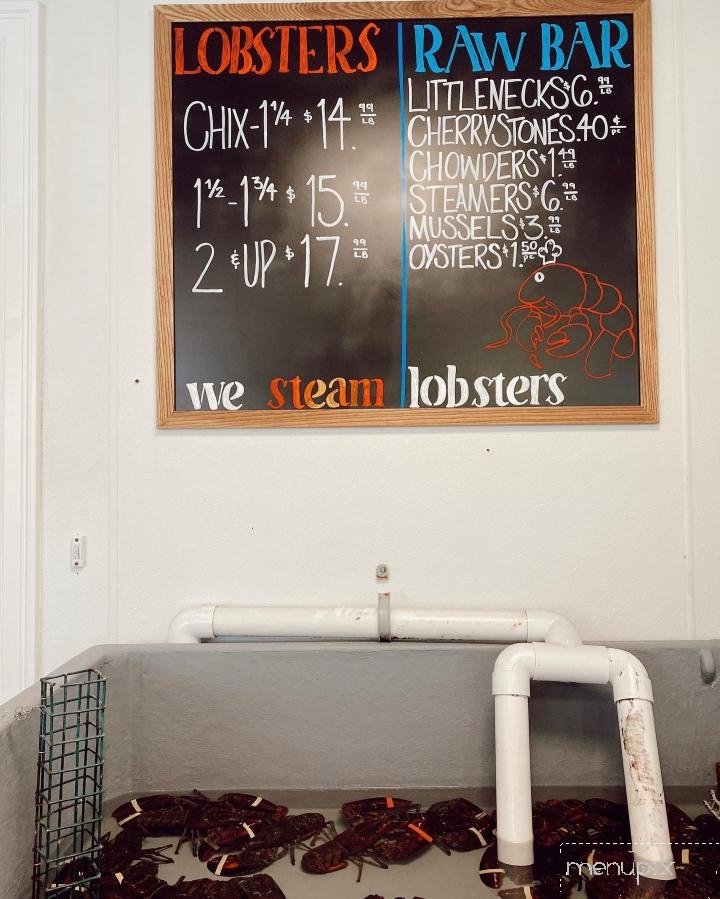 LOBSTERS
CHIX-1 1/4 $14.99 LB
1 1/2-1 3/4 $15.99 LB
2 & UP $17.99 LB
RAW BAR
LITTLENECKS $6.99 LB
CHERRYSTONES .40 ¢ PC
CHOWDERS $1.49 LB
STEAMERS $6.99 LB
MUSSELS $3.99 LB
OYSTERS $1.50 PC
we steam lobsters
menupix